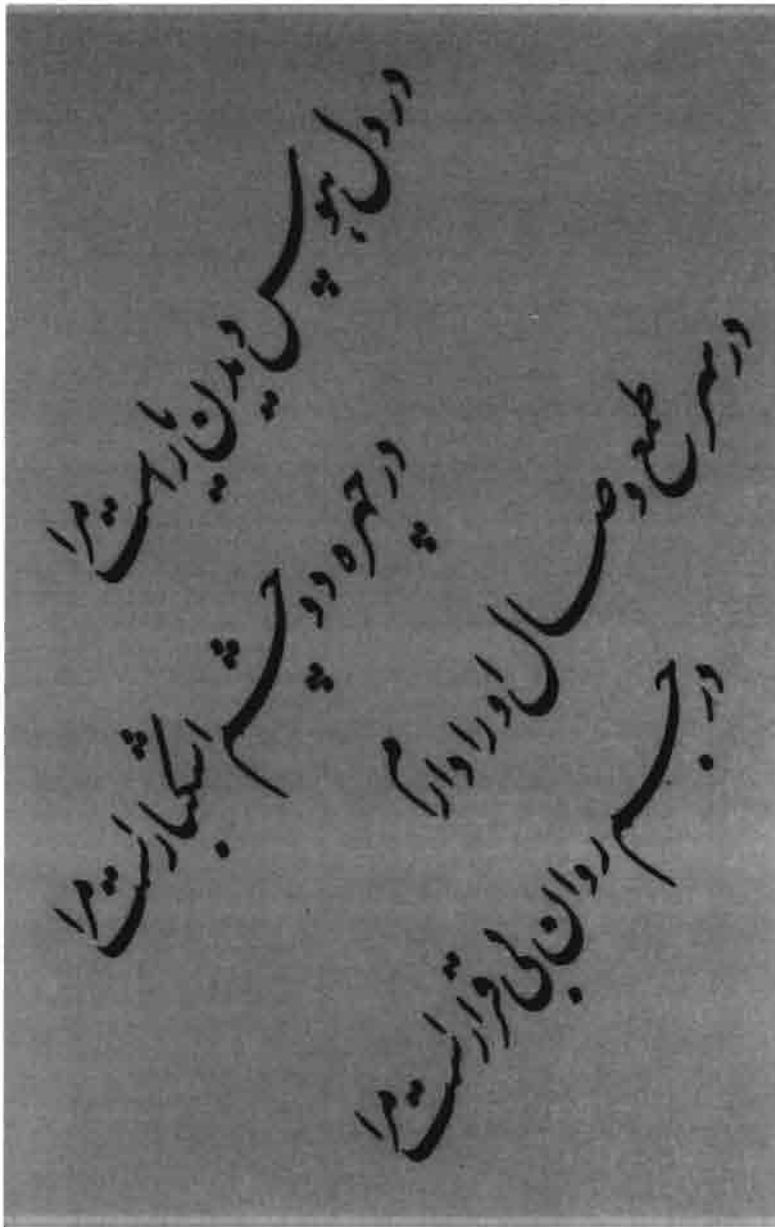 در دل هوس دیدن یارست مرا
در چهره دو چشم اشکبارست مرا
در سر طمع وصال او را دارم
در جسم روان بی قرارست مرا